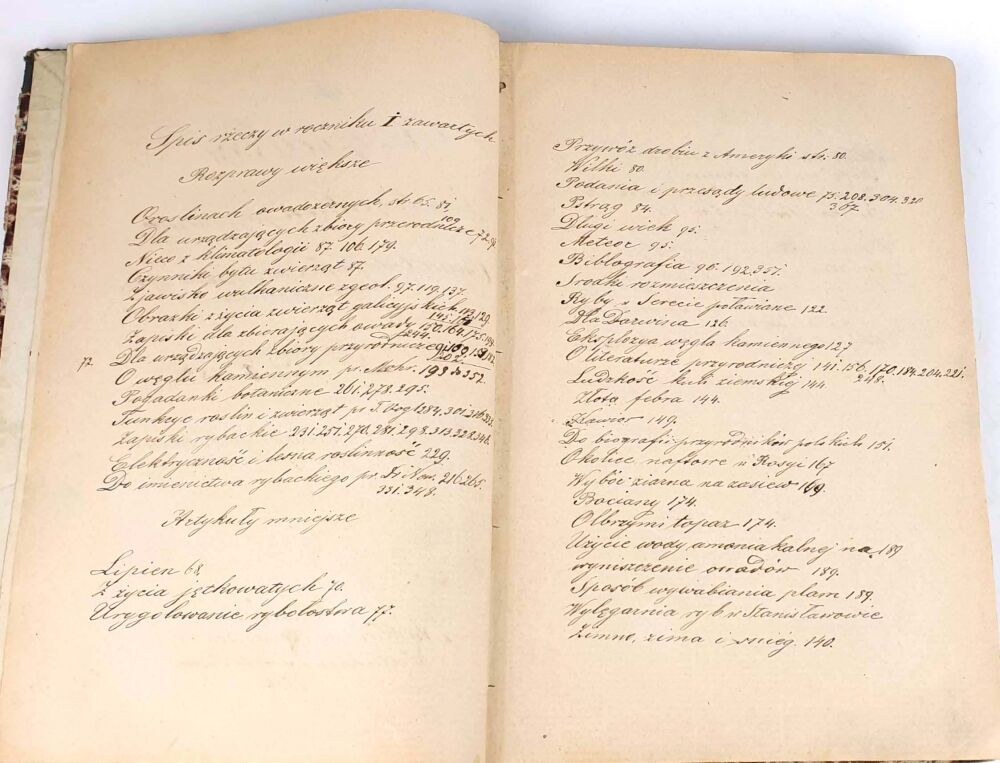 Spis rzeczy w roczniku I zawartych
Rozprawy większe
O roślinach owadożernych, str. 65. 81
Dla urządzających zbiory przyrodnicze 72. 94
109
Nieco z klimatologii 87. 106. 179.
Czynniki bytu zwierząt 87.
Zjawiska wulkaniczne z geol. 97. 119. 137.
Obrazki z życia zwierząt galicyjskich 113. 129.
141.
Zapiski dla zbierających owady 150. 164. 175.
244.
72. Dla urządzających zbiory przyrodnicze
202.
O węglu kamiennym pr. Mchr. 193 do 352.
Pogadanki botaniczne 261. 278. 295.
Funkcye roślin i zwierząt pr. 284. 301.
Zapiski rybackie 231. 251. 270. 281. 298. 313. 328. 346.
Elektryczność i leśna roślinność 229.
Do imienictwa rybackiego pr. Dr Now. 216. 265.
331. 348.
Artykuły mniejsze
Lipień 68.
Z życia jętkowatych 70.
Uregulowanie rybołostwa 77.
Przywóz drobiu z Ameryki str. 80.
Wilki 80.
Podania i przesądy ludowe 75. 208. 304. 320
367
Pstrąg 84.
Długi wiek 95.
Meteor 95.
Biblografia 96. 192. 351.
Środki rozmieszczenia
Ryby w Serecie poławiane 122.
Dla Darwina 126.
Eksplozya węgla kamiennego 127
O literaturze przyrodniczéj 141. 156. 170. 184. 204. 221.
248.
Ludzkość kuli ziemskiej 144.
Złota febra 144.
Kawior 149.
Do biografii przyrodników polskich 151.
Okolice naftowe w Rosyi 167
Wybór ziarna na zasiew 169.
Bociany 174.
Olbrzymi topaz 174.
Użycie wody amoniakalnej na 189
wyniszczenie owadów 189.
Sposób wywabiania plam 189.
Wylęgarnia ryb w Stanisławowie
Zimno, zima i śnieg. 140.